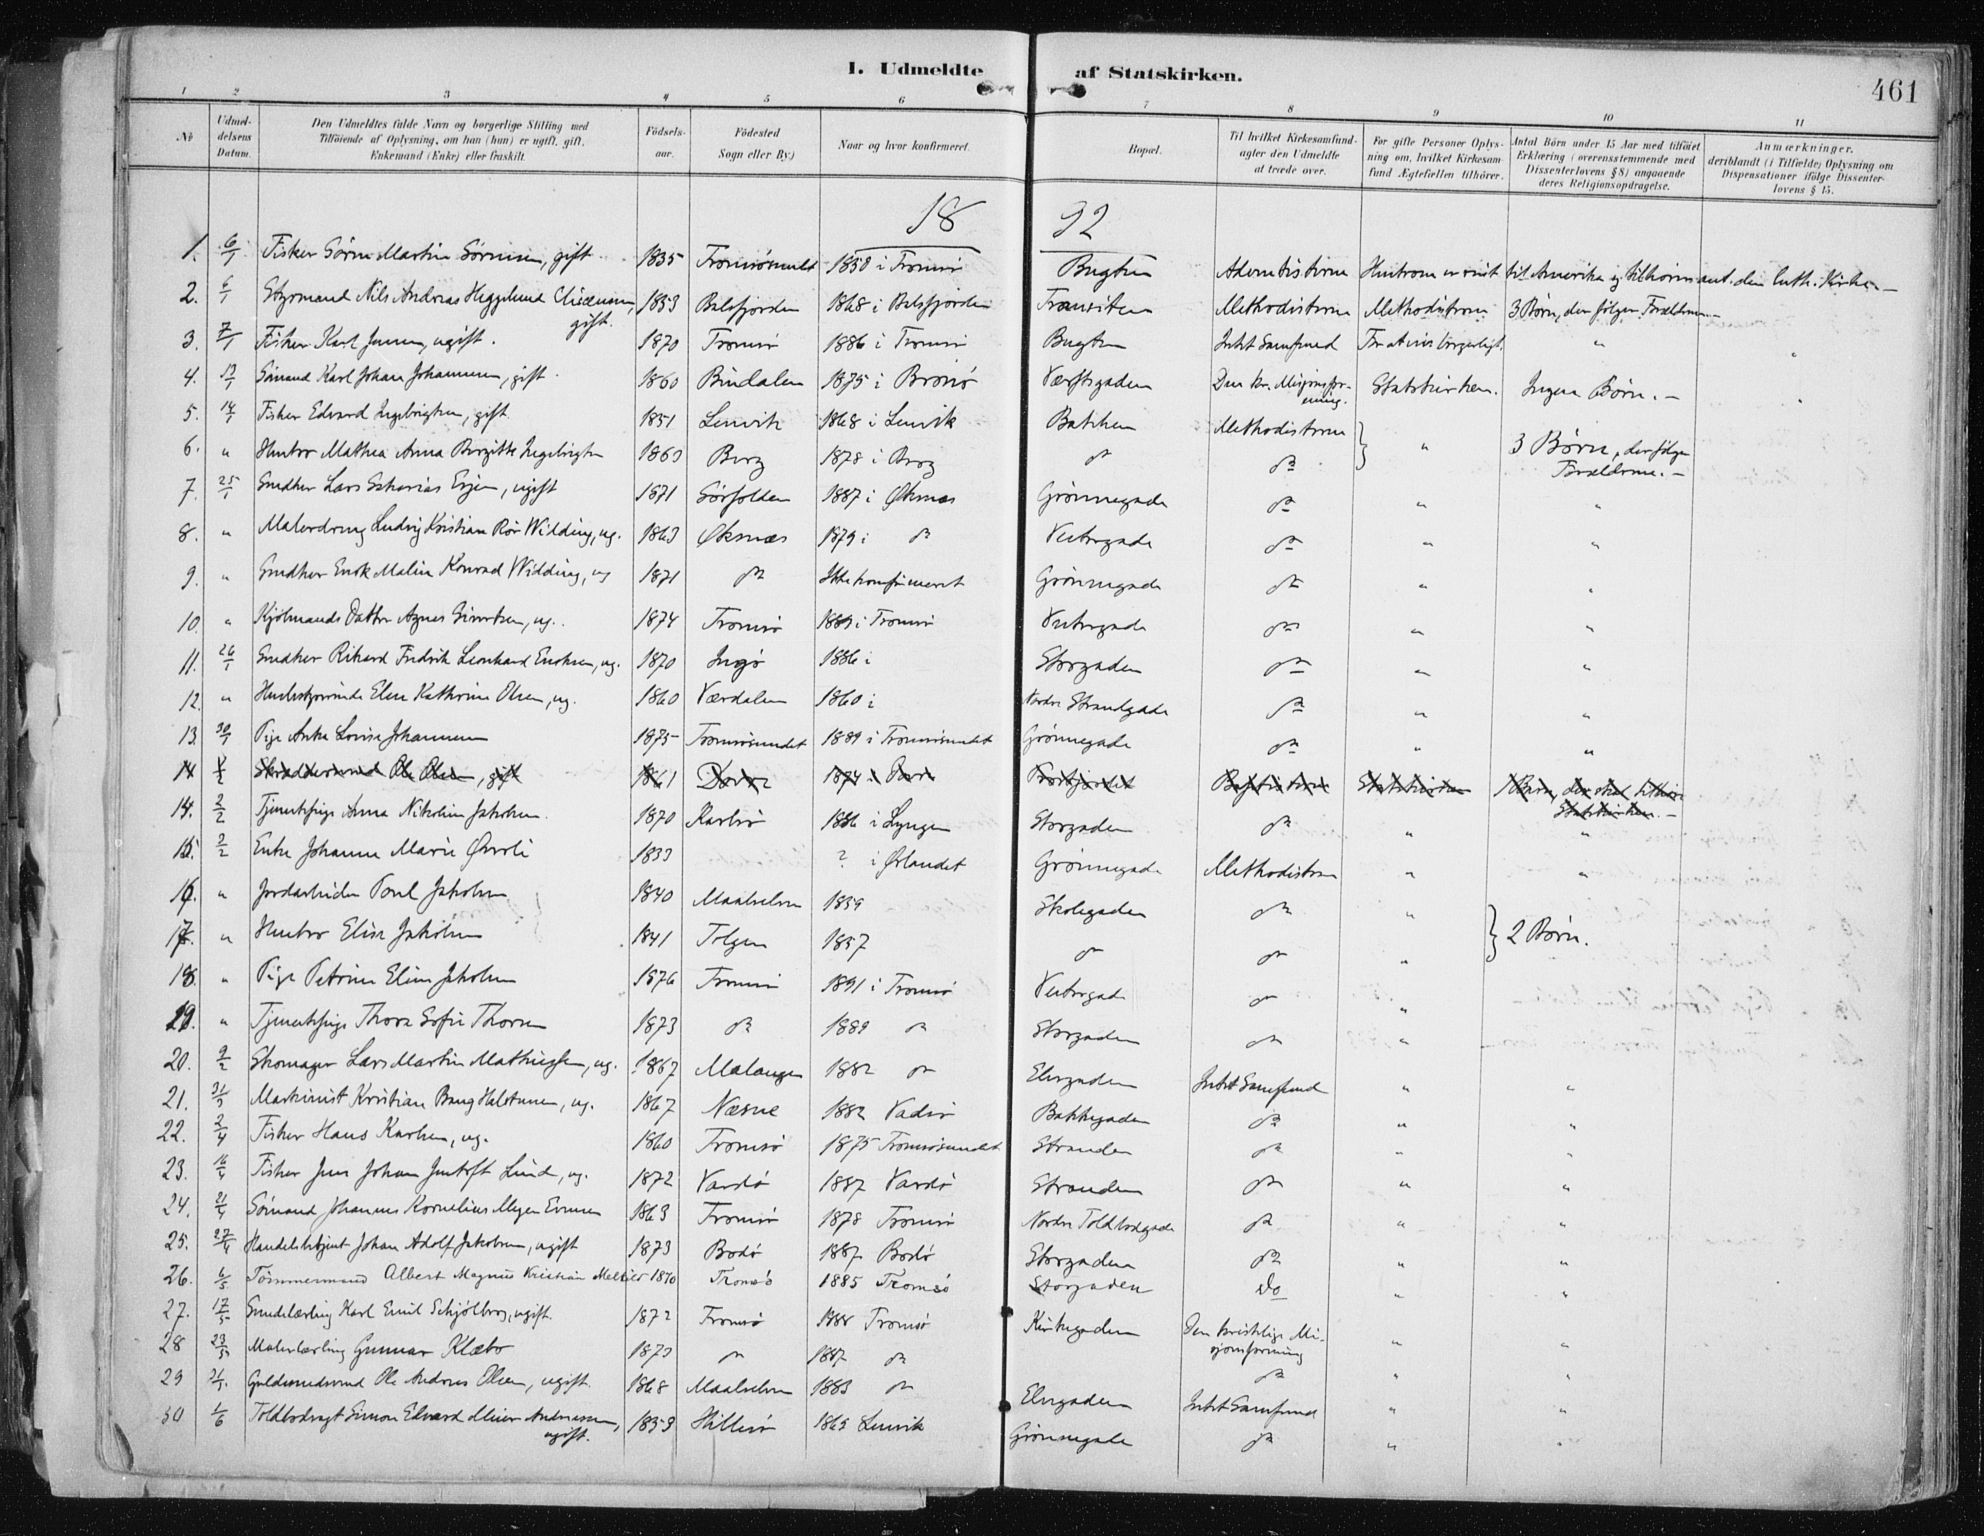 I. Udmeldte af Statskirken.
461
1 2 3 4 5 6 7 8 9 10 11
No
Udmel-
delsens
Datum.
Den Udmeldtes fulde Navn og borgerlige Stilling med
Tilføiende af Oplysning, om han (hun) er ugift, gift,
Enkemand (Enke) eller fraskilt.
Fødsels-
aar.
Fødested
Sogn eller By.)
Naar og hvor konfirmeret.
Bopæl.
Til hvilket Kirkesamfund
agter den Udmeldte
at træde over.
For gifte Personer Oplys-
ning om, hvilket Kirkesam-
fund Ægtefællen tilhører.
Antal Børn under 15 Aar med tilføiet
Erklæring (overensstemmende med
Dissenterlovens § 8) angaaende
deres Religionsopdragelse.
Anmærkninger,
deriblandt (i Tilfælde) Oplysning om
Dispensationer ifølge Dissenter-
lovens § 15.
18 92
1. 6/1 Fisker Sören Martin Sörensen, gift 1835 Tromsösundet 1850 i Tromsö Bugten Adventisterne Hustruen er reist til Amerika og tilhører ant. den luth. Kirke. —
2. 6/1 Nils Andreas Heggelund 1853 Balsfjorden 1868 i Balsfjorden Methodisterne Methodisterne 3 Børn, der følger Forældrene —
gift.
3. 7/1 Fisker Karl Jensen, ugift. 1870 Tromsö 1886 i Tromsö Bugten Intet Samfund "
4. 13/1 Sömand Karl Johan Johannesen, gift. 1860 Bindalen 1875 i Brönö Værftsgaden Den kr. Misjonsfor-
ening. Statskirken. Ingen Börn. —
5. 14/1 Fisker Edvard Ingebrigtsen, gift. 1851 Lenvik 1868 i Lenvik Bakken Methodisterne
6. " Hustru Mathea Anna Birgitte Ingebrigtsen 1863 Berg 1878 i Berg do do " 3 Børn, der følger
Forældrene. —
7. 25/1 Snedker Lars Sakarias Evjen, ugift 1871 Sörfolden 1887 i Øksnæs Grönnegade do " "
8. " Malerdreng Ludvig Kristian Rör Widding, ug. 1863 Øksnæs 1879 i do Vestregade do " "
9. " Snedker Enok Malin Konrad Widding, ug 1871 do Ikke konfirmeret Grönnegade do " "
10. " Datter Agnes Sivertsen, ug. 1874 Tromsö 1889 i Tromsö Vestregade do " "
11. 26/1 Snedker Rikard Fredrik Leonhard Enoksen, ug. 1870 Ingö 1886 i Storgaden do " "
12. " Elen Kathrine Olsen, ug. 1860 Værdalen 1860 i Nordre Strandgade do " "
13. 30/1 Pige Anke Lovise Johannesen 1875 Tromsösundet 1889 i Tromsösundet Grönnegade do " "
14 1/2 Skræddersvend Ole Olsen, gift 1861 1874 i Baptisterne Statskirken 1 Barn, der skal tilhöre
Statskirken. —
14. 2/2 Tjenestepige Anna Nikoline Jakobsen 1870 Karlsö 1886 i Lyngen Storgaden do " "
15. 3/2 Enke Johanna Marie Øverli 1833 ? i Ørlandet Grönnegade Methodisterne " "
16. " Jordarbeider Poul Jakobsen 1840 Maalselven 1859 Skolegaden do "
17. " Hustru Elise Jakobsen 1841 Tolgen 1857 do do " 2 Börn.
18. " Pige Petrine Elise Jakobsen 1876 Tromsö 1891 i Tromsö Vestregade do "
19. " Tjenestepige Thora Sofie Thorsen 1873 do 1889 do Storgaden do "
20. 9/2 Skomager Lars Martin Mathiesen, ug. 1867 Malangen 1882 do Elvegaden Intet Samfund " "
21. 31/3 Maskinist Kristian Bang Halstensen, ug. 1867 Næsne 1882 Vadsö Bakkegaden do " "
22. 2/4 Fisker Hans Karlsen, ug. 1860 Tromsö 1875 Tromsösundet Stranden do " "
23. 16/4 Fisker Jens Johan Lind, ug. 1872 Vardö 1887 Vardö Stranden do " "
24. 21/4 Sömand Johannes Kornelius Meyer Evensen 1863 Tromsö 1878 Tromsö Nordre Toldbodgade do " "
25. 27/4 Handelsbetjent Johan Adolf Jakobsen, ugift 1873 Bodö 1887 Bodö Storgaden do " "
26. 6/5 Tömmermand Albert Magnus Kristian 1870 Tromsö 1885 Tromsö Storgaden Do " "
27. 17/5 Karl Emil Schjølberg, ugift. 1872 Tromsö 1888 Tromsö Kirkegaden Den kristelige Mi-
sjonsforening " "
28 23/5 Malerlærling Gunnar Klæbo 1873 do 1887 do do " "
29 Guldsmedsvend Ole Andreas Olsen, ugift. 1868 Maalselven 1883 do Elvegaden Intet Samfund " "
30 1/6 Toldbodvagt Simon Edvard Meier Andreassen, 1853 Hillesö 1869 Lenvik Grönnegade do " "
ugift.